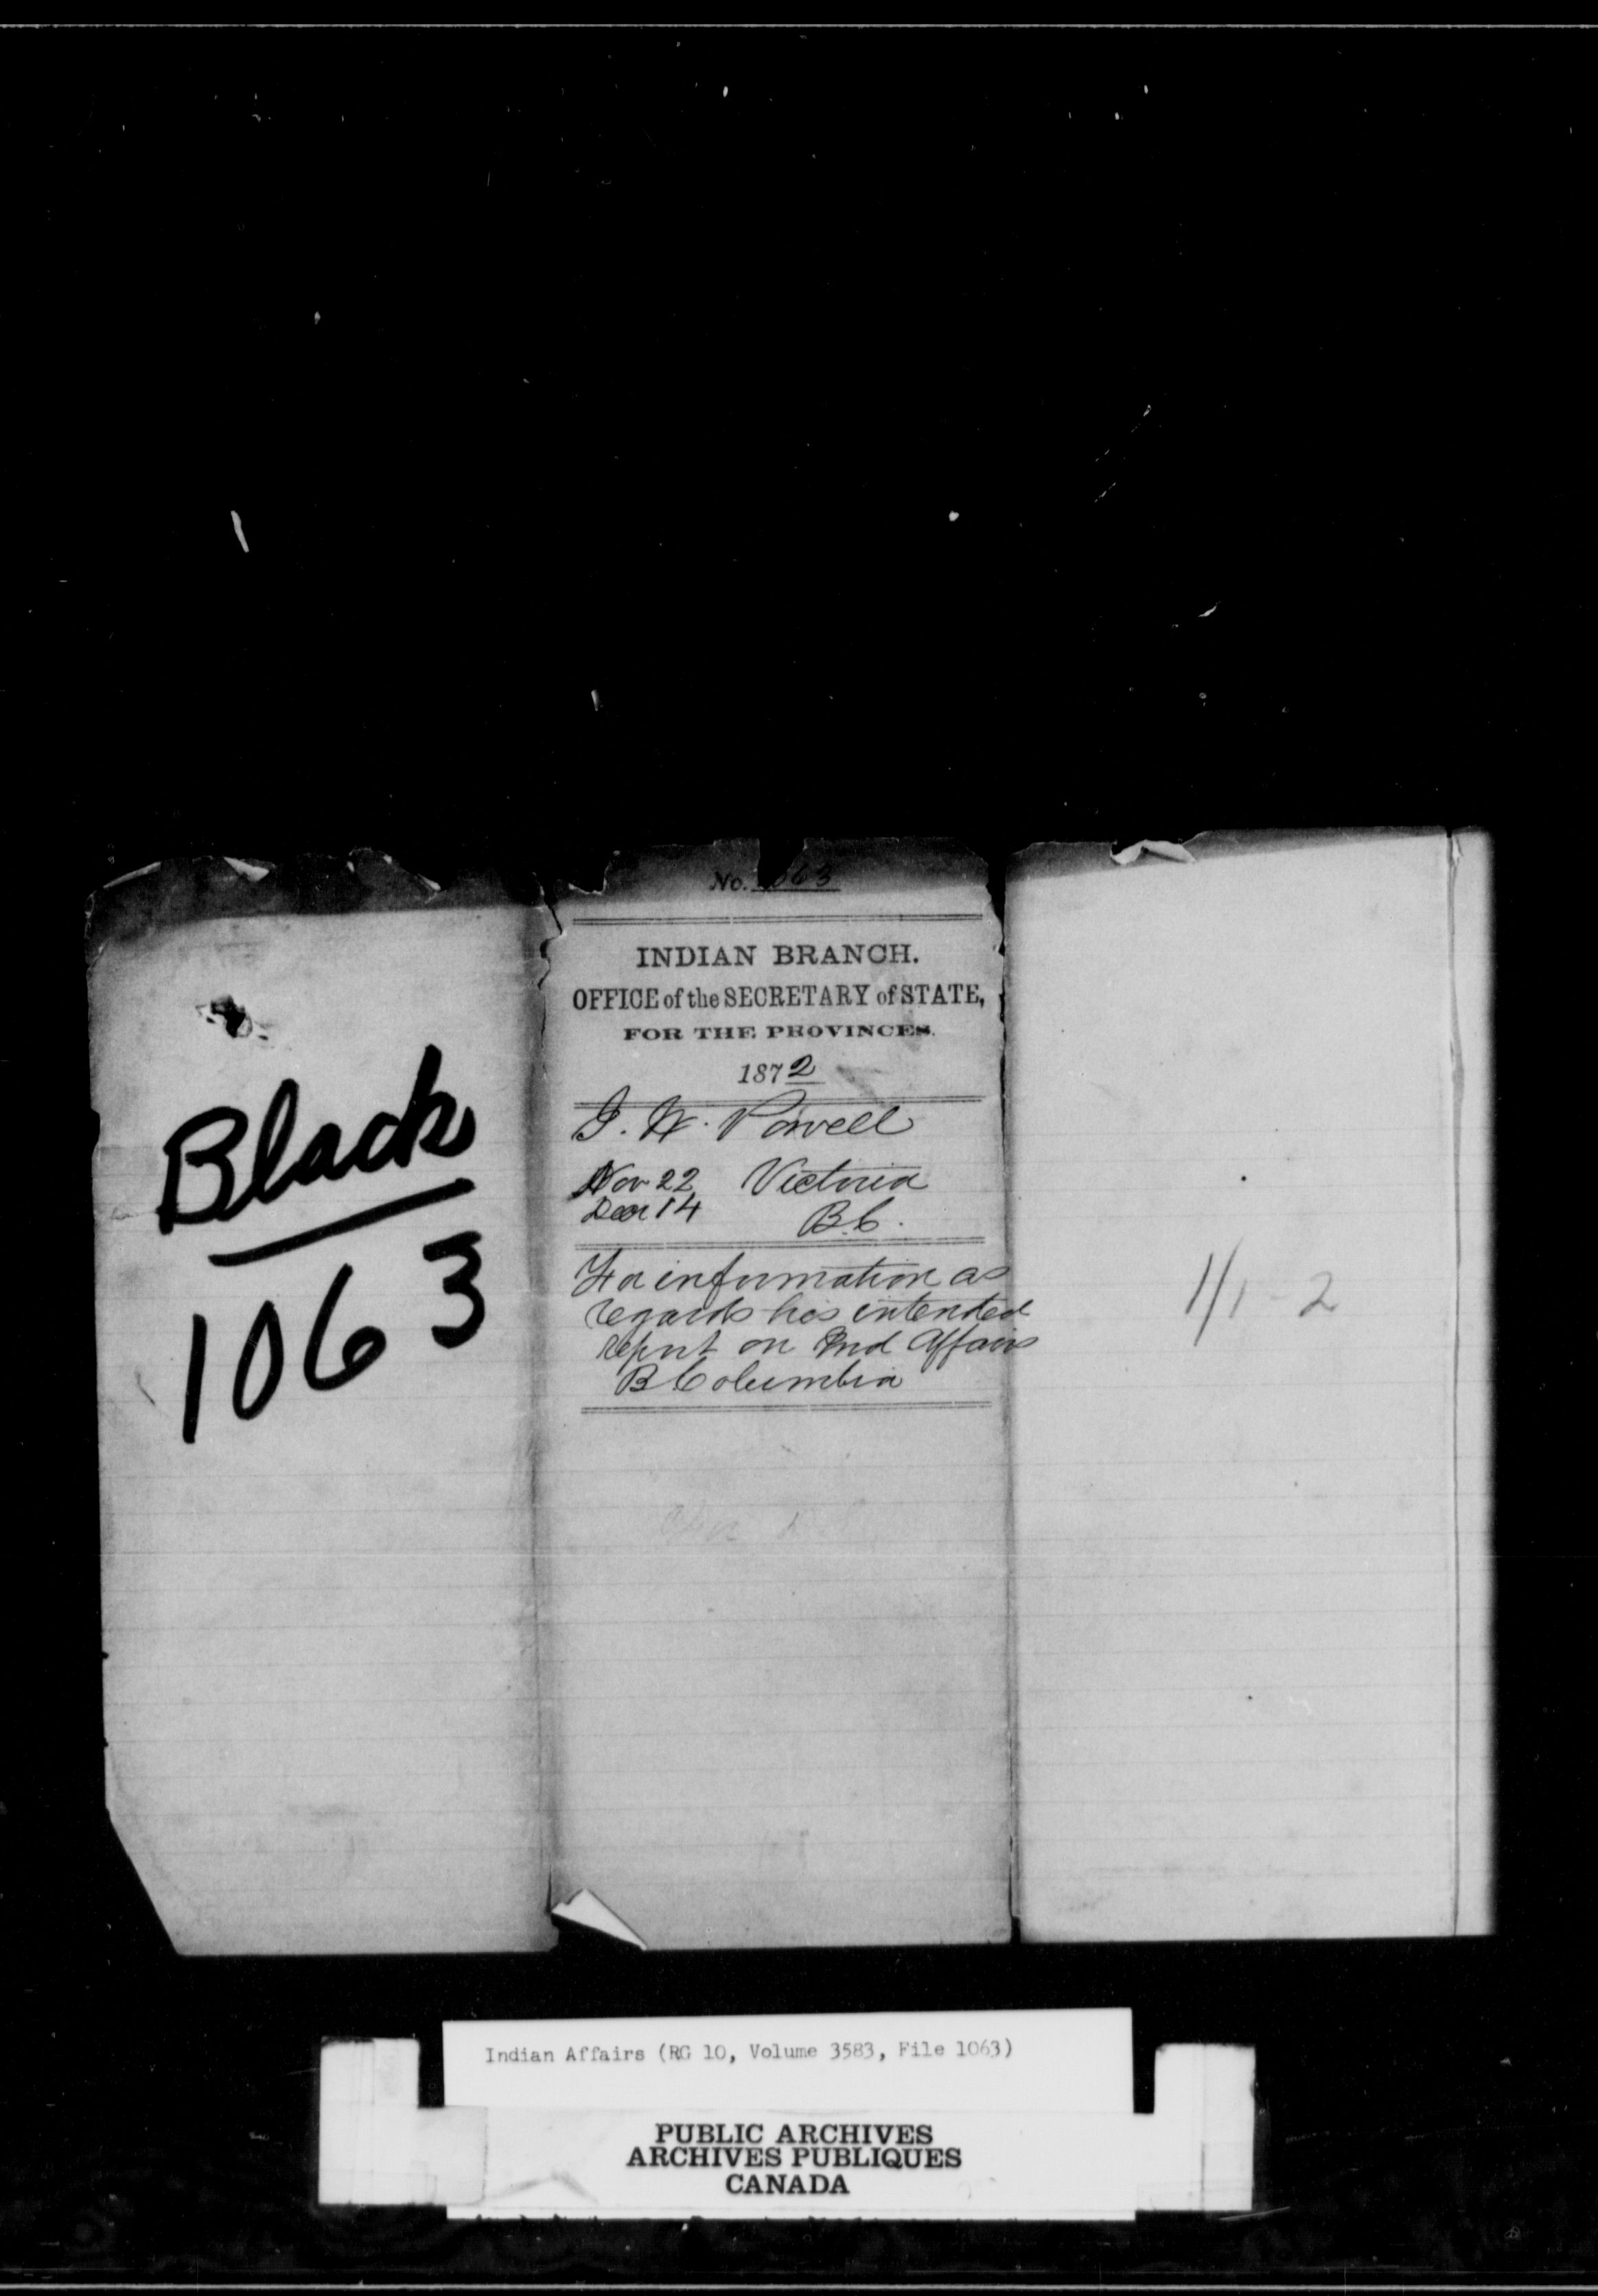 Black
1063
No. 1063
INDIAN BRANCH.
OFFICE of the SECRETARY of STATE,
FOR THE PROVINCES.
1872
I. W. Powell
Nov 22 Victoria
Decr 14 B.C.
For information as
regards his intended
report on Ind Affairs
B Columbia
1/1-2
Indian Affairs (RG 10, Volume 3583, File 1063)
PUBLIC ARCHIVES
ARCHIVES PUBLIQUES
CANADA